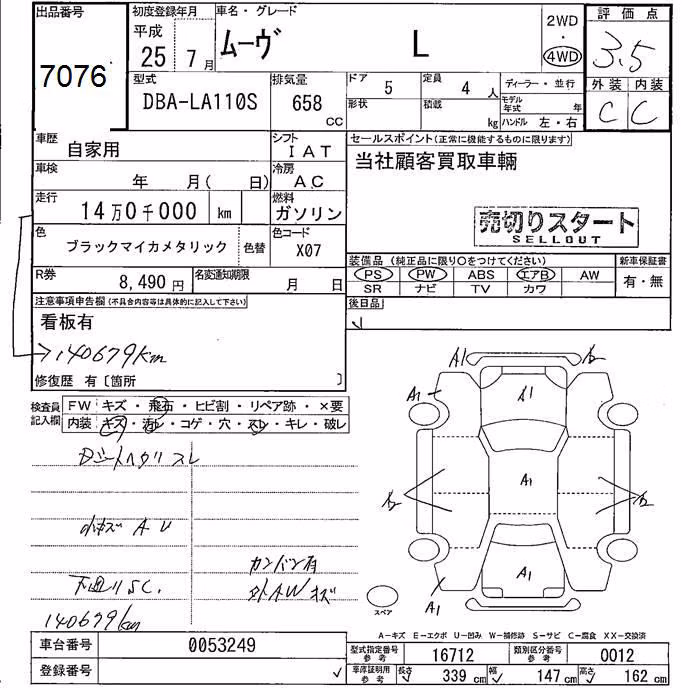 出品番号
7076
初度登録年月
平成
25 7月
車名・グレード
ムーヴ L
2WD
・
4WD
評価点
3.5
型式
DBA-LA110S
排気量
658
CC
ドア 5
定員 4 人
ディーラー・並行
形状
積載 kg
モデル年式 年
ハンドル 左・右
外装 内装
C C
車歴
自家用
シフト
IAT
セールスポイント(正常に機能するものに限ります)
当社顧客買取車輌
車検
年 月( 日)
冷房
AC
走行
14万0千000 km
燃料
ガソリン
売切りスタート
SELLOUT
色
ブラックマイカメタリック
色替
色コード
X07
装備品(純正品に限り○をつけてください)
新車保証書
PS PW ABS エアB AW
有・無
SR ナビ TV カワ
R券
8,490円
名変通知期限
月 日
後日品
注意事項申告欄(不具合内容等は具体的に記入して下さい)
看板有
140679km
修復歴 有〔箇所 〕
検査員
記入欄
FW キズ・飛石・ヒビ割・リペア跡・×要
内装 キズ・汚レ・コゲ・穴・スレ・キレ・破レ
スレ
小キズ A U
カンバン有
下廻りSC.
外AWキズ
140679km
A1
A1
A1
A1
A1
A1
スペア
A-キズ E-エクボ U-凹み W-補修跡 S-サビ C-腐食 XX-交換済
車台番号 0053249
登録番号
型式指定番号
参考
16712
類別区分番号
参考
0012
車庫証明用
参考
長さ 339 cm
幅 147 cm
高さ 162 cm